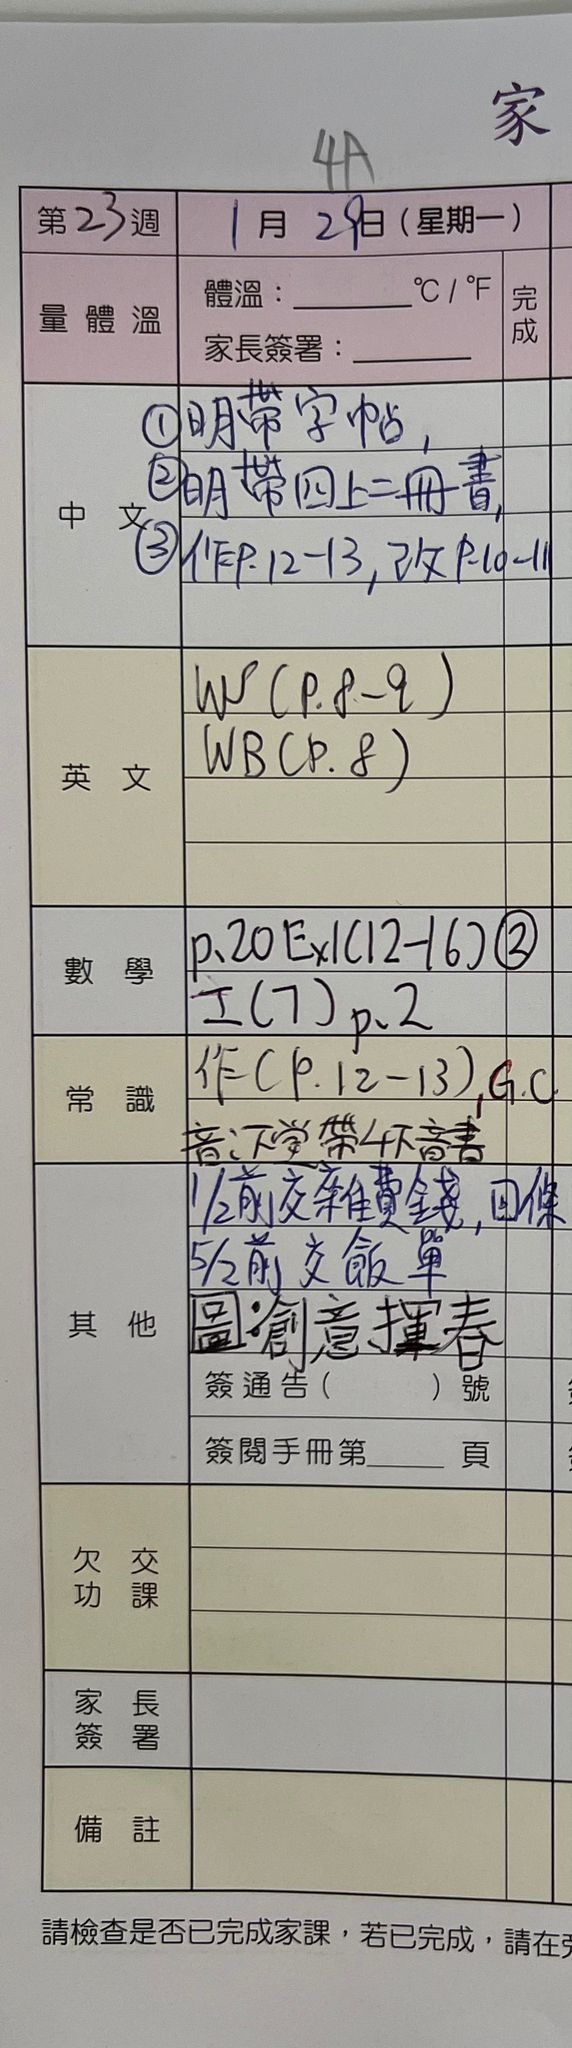 家
4A
第23週 1月29日(星期一)
量體溫 體溫：______°C / °F 完成
家長簽署：______
中文 ①明帶字帖,
②明帶四上二冊書,
③作P.12-13,改P.10-11
英文 WS(P.8-9)
WB(P.8)
數學 p.20 Ex1(12-16)②
工(7)p.2
常識 作(P.12-13),G.C.
音:下堂帶4下音書
其他 1/2前交雜費錢,回條
5/2前交飯單
圖:創意揮春
簽通告( )號
簽閱手冊第____頁
欠交功課
家長簽署
備註
請檢查是否已完成家課，若已完成，請在